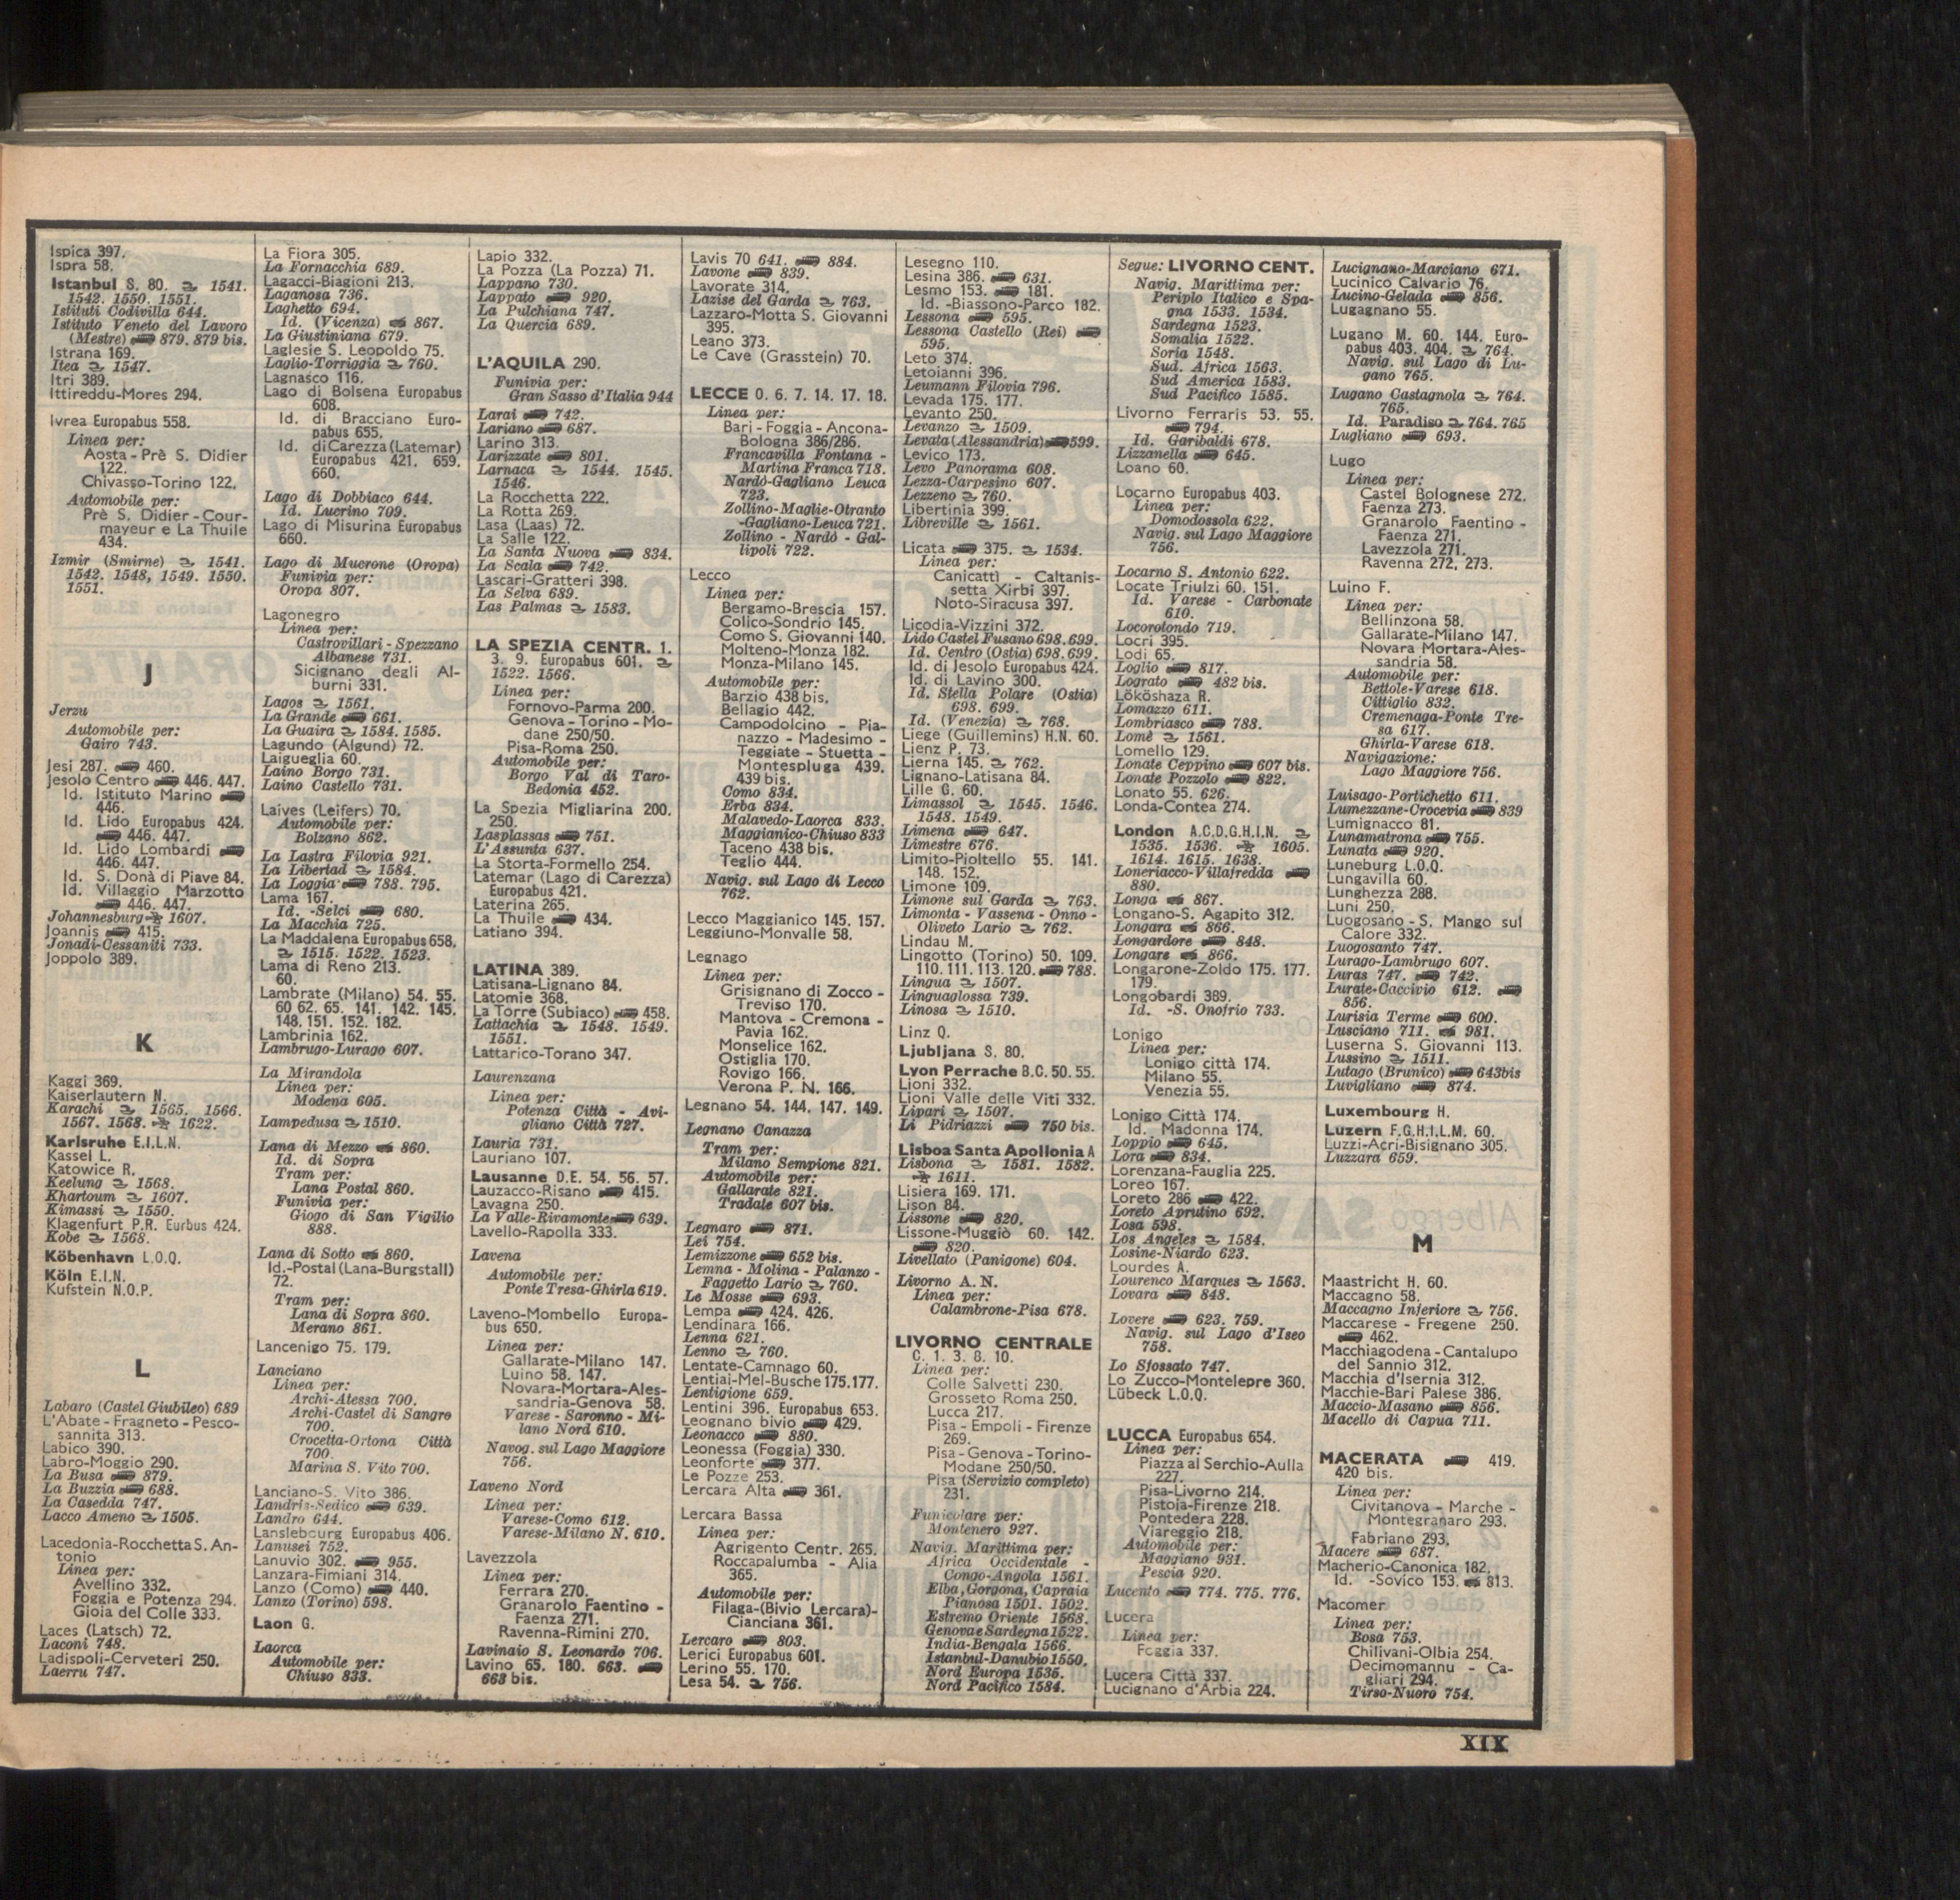 Ispica 397.
Ispra 58.
Istanbul S. 80. 1541.
1542. 1550. 1551.
Istituti Codivilla 644.
Istituto Veneto del Lavoro
(Mestre) 879. 879 bis.
Istrana 169.
Itea 1547.
Itri 389.
Ittireddu-Mores 294.
Ivrea Europabus 558.
Linea per:
Aosta - Prè S. Didier
122.
Chivasso-Torino 122.
Automobile per:
Prè S. Didier - Cour-
mayeur e La Thuile
434.
Izmir (Smirne) 1541.
1542. 1548, 1549. 1550.
1551.
J
Jerzu
Automobile per:
Gairo 743.
Jesi 287. 460.
Jesolo Centro 446. 447.
Id. Istituto Marino
446.
Id. Lido Europabus 424.
446. 447.
Id. Lido Lombardi
446. 447.
Id. S. Donà di Piave 84.
Id. Villaggio Marzotto
446. 447.
Johannesburg 1607.
Joannis 415.
Jonadi-Cessaniti 733.
Joppolo 389.
K
Kaggi 369.
Kaiserlautern N.
Karachi 1565. 1566.
1567. 1568. 1622.
Karlsruhe E.I.L.N.
Kassel L.
Katowice R.
Keelung 1568.
Khartoum 1607.
Kimassi 1550.
Klagenfurt P.R. Eurbus 424.
Kobe 1568.
Köbenhavn L.O.Q.
Köln E.I.N.
Kufstein N.O.P.
L
Labaro (Castel Giubileo) 689
L'Abate - Fragneto - Pesco-
sannita 313.
Labico 390.
Labro-Moggio 290.
La Busa 879.
La Buzzia 688.
La Casedda 747.
Lacco Ameno 1505.
Lacedonia-Rocchetta S. An-
tonio
Linea per:
Avellino 332.
Foggia e Potenza 294.
Gioia del Colle 333.
Laces (Latsch) 72.
Laconi 748.
Ladispoli-Cerveteri 250.
Laerru 747.
La Fiora 305.
La Fornacchia 689.
Lagacci-Biagioni 213.
Laganosa 736.
Laghetto 694.
Id. (Vicenza) 867.
La Giustiniana 679.
Laglesie S. Leopoldo 75.
Laglio-Torriggia 760.
Lagnasco 116.
Lago di Bolsena Europabus
608.
Id. di Bracciano Euro-
pabus 655.
Id. di Carezza (Latemar)
Europabus 421. 659.
660.
Lago di Dobbiaco 644.
Id. Lucrino 709.
Lago di Misurina Europabus
660.
Lago di Mucrone (Oropa)
Funivia per:
Oropa 807.
Lagonegro
Linea per:
Castrovillari - Spezzano
Albanese 731.
Sicignano degli Al-
burni 331.
Lagos 1561.
La Grande 661.
La Guaira 1584. 1585.
Lagundo (Algund) 72.
Laigueglia 60.
Laino Borgo 731.
Laino Castello 731.
Laives (Leifers) 70.
Automobile per:
Bolzano 862.
La Lastra Filovia 921.
La Libertad 1584.
La Loggia 788. 795.
Lama 167.
Id. -Selci 680.
La Macchia 725.
La Maddalena Europabus 658.
1515. 1522. 1523.
Lama di Reno 213.
60.
Lambrate (Milano) 54. 55.
60 62. 65. 141. 142. 145.
148. 151. 152. 182.
Lambrinia 162.
Lambrugo-Lurago 607.
La Mirandola
Linea per:
Modena 605.
Lampedusa 1510.
Lana di Mezzo 860.
Id. di Sopra
Tram per:
Lana Postal 860.
Funivia per:
Giogo di San Vigilio
888.
Lana di Sotto 860.
Id.-Postal (Lana-Burgstall)
72.
Tram per:
Lana di Sopra 860.
Merano 861.
Lancenigo 75. 179.
Lanciano
Linea per:
Archi-Atessa 700.
Archi-Castel di Sangro
700.
Crocetta-Ortona Città
700.
Marina S. Vito 700.
Lanciano-S. Vito 386.
Landris-Sedico 639.
Landro 644.
Lanslebourg Europabus 406.
Lanusei 752.
Lanuvio 302. 955.
Lanzara-Fimiani 314.
Lanzo (Como) 440.
Lanzo (Torino) 598.
Laon G.
Laorca
Automobile per:
Chiuso 833.
Lapio 332.
La Pozza (La Pozza) 71.
Lappano 730.
Lappato 920.
La Pulchiana 747.
La Quercia 689.
L'AQUILA 290.
Funivia per:
Gran Sasso d'Italia 944
Larai 742.
Lariano 687.
Larino 313.
Larizzate 801.
Larnaca 1544. 1545.
1546.
La Rocchetta 222.
La Rotta 269.
Lasa (Laas) 72.
La Salle 122.
La Santa Nuova 834.
La Scala 742.
Lascari-Gratteri 398.
La Selva 689.
Las Palmas 1583.
LA SPEZIA CENTR. 1.
3. 9. Europabus 601.
1522. 1566.
Linea per:
Fornovo-Parma 200.
Genova - Torino - Mo-
dane 250/50.
Pisa-Roma 250.
Automobile per:
Borgo Val di Taro-
Bedonia 452.
La Spezia Migliarina 200.
250.
Lasplassas 751.
L'Assunta 637.
La Storta-Formello 254.
Latemar (Lago di Carezza)
Europabus 421.
Laterina 265.
La Thuile 434.
Latiano 394.
LATINA 389.
Latisana-Lignano 84.
Latomie 368.
La Torre (Subiaco) 458.
Lattachia 1548. 1549.
1551.
Lattarico-Torano 347.
Laurenzana
Linea per:
Potenza Città - Avi-
gliano Città 727.
Lauria 731.
Lauriano 107.
Lausanne D.E. 54. 56. 57.
Lauzacco-Risano 415.
Lavagna 250.
La Valle-Rivamonte 639.
Lavello-Rapolla 333.
Lavena
Automobile per:
Ponte Tresa-Ghirla 619.
Laveno-Mombello Europa-
bus 650.
Linea per:
Gallarate-Milano 147.
Luino 58. 147.
Novara-Mortara-Ales-
sandria-Genova 58.
Varese - Saronno - Mi-
lano Nord 610.
Navog. sul Lago Maggiore
756.
Laveno Nord
Linea per:
Varese-Como 612.
Varese-Milano N. 610.
Lavezzola
Linea per:
Ferrara 270.
Granarolo Faentino -
Faenza 271.
Ravenna-Rimini 270.
Lavinaio S. Leonardo 706.
Lavino 65. 180. 663.
663 bis.
Lavis 70 641. 884.
Lavone 839.
Lavorate 314.
Lazise del Garda 763.
Lazzaro-Motta S. Giovanni
395.
Leano 373.
Le Cave (Grasstein) 70.
LECCE 0. 6. 7. 14. 17. 18.
Linea per:
Bari - Foggia - Ancona-
Bologna 386/286.
Francavilla Fontana -
Martina Franca 718.
Nardò-Gagliano Leuca
723.
Zollino-Maglie-Otranto
-Gagliano-Leuca 721.
Zollino - Nardò - Gal-
lipoli 722.
Lecco
Linea per:
Bergamo-Brescia 157.
Colico-Sondrio 145.
Como S. Giovanni 140.
Molteno-Monza 182.
Monza-Milano 145.
Automobile per:
Barzio 438 bis.
Bellagio 442.
Campodolcino - Pia-
nazzo - Madesimo -
Teggiate - Stuetta -
Montespluga 439.
439 bis.
Como 834.
Erba 834.
Malavedo-Laorca 833.
Maggianico-Chiuso 833
Taceno 438 bis.
Teglio 444.
Navig. sul Lago di Lecco
762.
Lecco Maggianico 145. 157.
Leggiuno-Monvalle 58.
Legnago
Linea per:
Grisignano di Zocco -
Treviso 170.
Mantova - Cremona -
Pavia 162.
Monselice 162.
Ostiglia 170.
Rovigo 166.
Verona P. N. 166.
Legnano 54. 144. 147. 149.
Legnano Canazza
Tram per:
Milano Sempione 821.
Automobile per:
Gallarate 821.
Tradate 607 bis.
Legnaro 871.
Lei 754.
Lemizzone 652 bis.
Lemna - Molina - Palanzo -
Faggetto Lario 760.
Le Mosse 693.
Lempa 424. 426.
Lendinara 166.
Lenna 621.
Lenno 760.
Lentate-Camnago 60.
Lentiai-Mel-Busche 175.177.
Lentigione 659.
Lentini 396. Europabus 653.
Leognano bivio 429.
Leonacco 880.
Leonessa (Foggia) 330.
Leonforte 377.
Le Pozze 253.
Lercara Alta 361.
Lercara Bassa
Linea per:
Agrigento Centr. 265.
Roccapalumba - Alia
365.
Automobile per:
Filaga-(Bivio Lercara)-
Cianciana 361.
Lercaro 803.
Lerici Europabus 601.
Lerino 55. 170.
Lesa 54. 756.
Lesegno 110.
Lesina 386. 631.
Lesmo 153. 181.
Id. -Biassono-Parco 182.
Lessona 595.
Lessona Castello (Rei)
595.
Leto 374.
Letoianni 396.
Leumann Filovia 796.
Levada 175. 177.
Levanto 250.
Levanzo 1509.
Levata (Alessandria) 599.
Levico 173.
Levo Panorama 608.
Lezza-Carpesino 607.
Lezzeno 760.
Libertinia 399.
Libreville 1561.
Licata 375. 1534.
Linea per:
Canicattì - Caltanis-
setta Xirbi 397.
Noto-Siracusa 397.
Licodia-Vizzini 372.
Lido Castel Fusano 698.699.
Id. Centro (Ostia) 698.699.
Id. di Jesolo Europabus 424.
Id. di Lavino 300.
Id. Stella Polare (Ostia)
698. 699.
Id. (Venezia) 768.
Liege (Guillemins) H.N. 60.
Lienz P. 73.
Lierna 145. 762.
Lignano-Latisana 84.
Lille G. 60.
Limassol 1545. 1546.
1548. 1549.
Limena 647.
Limestre 676.
Limito-Pioltello 55. 141.
148. 152.
Limone 109.
Limone sul Garda 763.
Limonta - Vassena - Onno -
Oliveto Lario 762.
Lindau M.
Lingotto (Torino) 50. 109.
110. 111. 113. 120. 788.
Lingua 1507.
Linguaglossa 739.
Linosa 1510.
Linz Q.
Ljubljana S. 80.
Lyon Perrache B.C. 50. 55.
Lioni 332.
Lioni Valle delle Viti 332.
Lipari 1507.
Li Pidriazzi 750 bis.
Lisboa Santa Apollonia A
Lisbona 1581. 1582.
1611.
Lisiera 169. 171.
Lison 84.
Lissone 820.
Lissone-Muggiò 60. 142.
820.
Livellato (Panigone) 604.
Livorno A. N.
Linea per:
Calambrone-Pisa 678.
LIVORNO CENTRALE
C. 1. 3. 8. 10.
Linea per:
Colle Salvetti 230.
Grosseto Roma 250.
Lucca 217.
Pisa - Empoli - Firenze
269.
Pisa - Genova - Torino-
Modane 250/50.
Pisa (Servizio completo)
231.
Funicolare per:
Montenero 927.
Navig. Marittima per:
Africa Occidentale -
Congo-Angola 1561.
Elba, Gorgona, Capraia
Pianosa 1501. 1502.
Estremo Oriente 1568.
Genova e Sardegna 1522.
India-Bengala 1566.
Istanbul-Danubio 1550.
Nord Europa 1535.
Nord Pacifico 1584.
Segue: LIVORNO CENT.
Navig. Marittima per:
Periplo Italico e Spa-
gna 1533. 1534.
Sardegna 1523.
Somalia 1522.
Soria 1548.
Sud. Africa 1563.
Sud America 1583.
Sud Pacifico 1585.
Livorno Ferraris 53. 55.
794.
Id. Garibaldi 678.
Lizzanella 645.
Loano 60.
Locarno Europabus 403.
Linea per:
Domodossola 622.
Navig. sul Lago Maggiore
756.
Locarno S. Antonio 622.
Locate Triulzi 60. 151.
Id. Varese - Carbonate
610.
Locorotondo 719.
Locri 395.
Lodi 65.
Loglio 817.
Lograto 482 bis.
Lököshaza R.
Lomazzo 611.
Lombriasco 788.
Lomè 1561.
Lomello 129.
Lonate Ceppino 607 bis.
Lonate Pozzolo 822.
Lonato 55. 626.
Londa-Contea 274.
London A.C.D.G.H.I.N.
1535. 1536. 1605.
1614. 1615. 1638.
Loneriacco-Villafredda
880.
Longa 867.
Longano-S. Agapito 312.
Longara 866.
Longardore 848.
Longare 866.
Longarone-Zoldo 175. 177.
179.
Longobardi 389.
Id. -S. Onofrio 733.
Lonigo
Linea per:
Lonigo città 174.
Milano 55.
Venezia 55.
Lonigo Città 174.
Id. Madonna 174.
Loppio 645.
Lora 834.
Lorenzana-Fauglia 225.
Loreo 167.
Loreto 286 422.
Loreto Aprutino 692.
Losa 598.
Los Angeles 1584.
Losine-Niardo 623.
Lourdes A.
Lourenco Marques 1563.
Lovara 848.
Lovere 623. 759.
Navig. sul Lago d'Iseo
758.
Lo Sfossato 747.
Lo Zucco-Montelepre 360.
Lübeck L.O.Q.
LUCCA Europabus 654.
Linea per:
Piazza al Serchio-Aulla
227.
Pisa-Livorno 214.
Pistoja-Firenze 218.
Pontedera 228.
Viareggio 218.
Automobile per:
Maggiano 931.
Pescia 920.
Lucento 774. 775. 776.
Lucera
Linea per:
Foggia 337.
Lucera Città 337.
Lucignano d'Arbia 224.
Lucignano-Marciano 671.
Lucinico Calvario 76.
Lucino-Gelada 856.
Lugagnano 55.
Lugano M. 60. 144. Euro-
pabus 403. 404. 764.
Navig. sul Lago di Lu-
gano 765.
Lugano Castagnola 764.
765.
Id. Paradiso 764. 765
Lugliano 693.
Lugo
Linea per:
Castel Bolognese 272.
Faenza 273.
Granarolo Faentino -
Faenza 271.
Lavezzola 271.
Ravenna 272, 273.
Luino F.
Linea per:
Bellinzona 58.
Gallarate-Milano 147.
Novara Mortara-Ales-
sandria 58.
Automobile per:
Bettole-Varese 618.
Cittiglio 832.
Cremenaga-Ponte Tre-
sa 617.
Ghirla-Varese 618.
Navigazione:
Lago Maggiore 756.
Luisago-Portichetto 611.
Lumezzane-Crocevia 839
Lumignacco 81.
Lunamatrona 755.
Lunata 920.
Luneburg L.O.Q.
Lungavilla 60.
Lunghezza 288.
Luni 250.
Luogosano - S. Mango sul
Calore 332.
Luogosanto 747.
Lurago-Lambrugo 607.
Luras 747. 742.
Lurate-Caccivio 612.
856.
Lurisia Terme 600.
Lusciano 711. 981.
Luserna S. Giovanni 113.
Lussino 1511.
Lutago (Brunico) 643bis
Luvigliano 874.
Luxembourg H.
Luzern F.G.H.I.L.M. 60.
Luzzi-Acri-Bisignano 305.
Luzzara 659.
M
Maastricht H. 60.
Maccagno 58.
Maccagno Inferiore 756.
Maccarese - Fregene 250.
462.
Macchiagodena - Cantalupo
del Sannio 312.
Macchia d'Isernia 312.
Macchie-Bari Palese 386.
Maccio-Masano 856.
Macello di Capua 711.
MACERATA 419.
420 bis.
Linea per:
Civitanova - Marche -
Montegranaro 293.
Fabriano 293.
Macere 687.
Macherio-Canonica 182.
Id. -Sovico 153. 813.
Macomer
Linea per:
Bosa 753.
Chilivani-Olbia 254.
Decimomannu - Ca-
gliari 294.
Tirso-Nuoro 754.
XIX